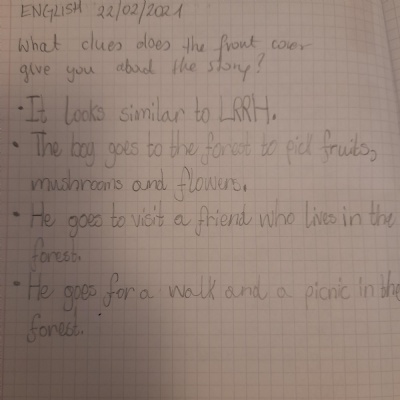 ENGLISH 22/02/2021
What clues does the front cover
give you about the story?
• It looks similar to LRRH.
• The boy goes to the forest to pick fruits,
mushrooms and flowers.
• He goes to visit a friend who lives in the
forest.
• He goes for a walk and a picnic in the
forest.